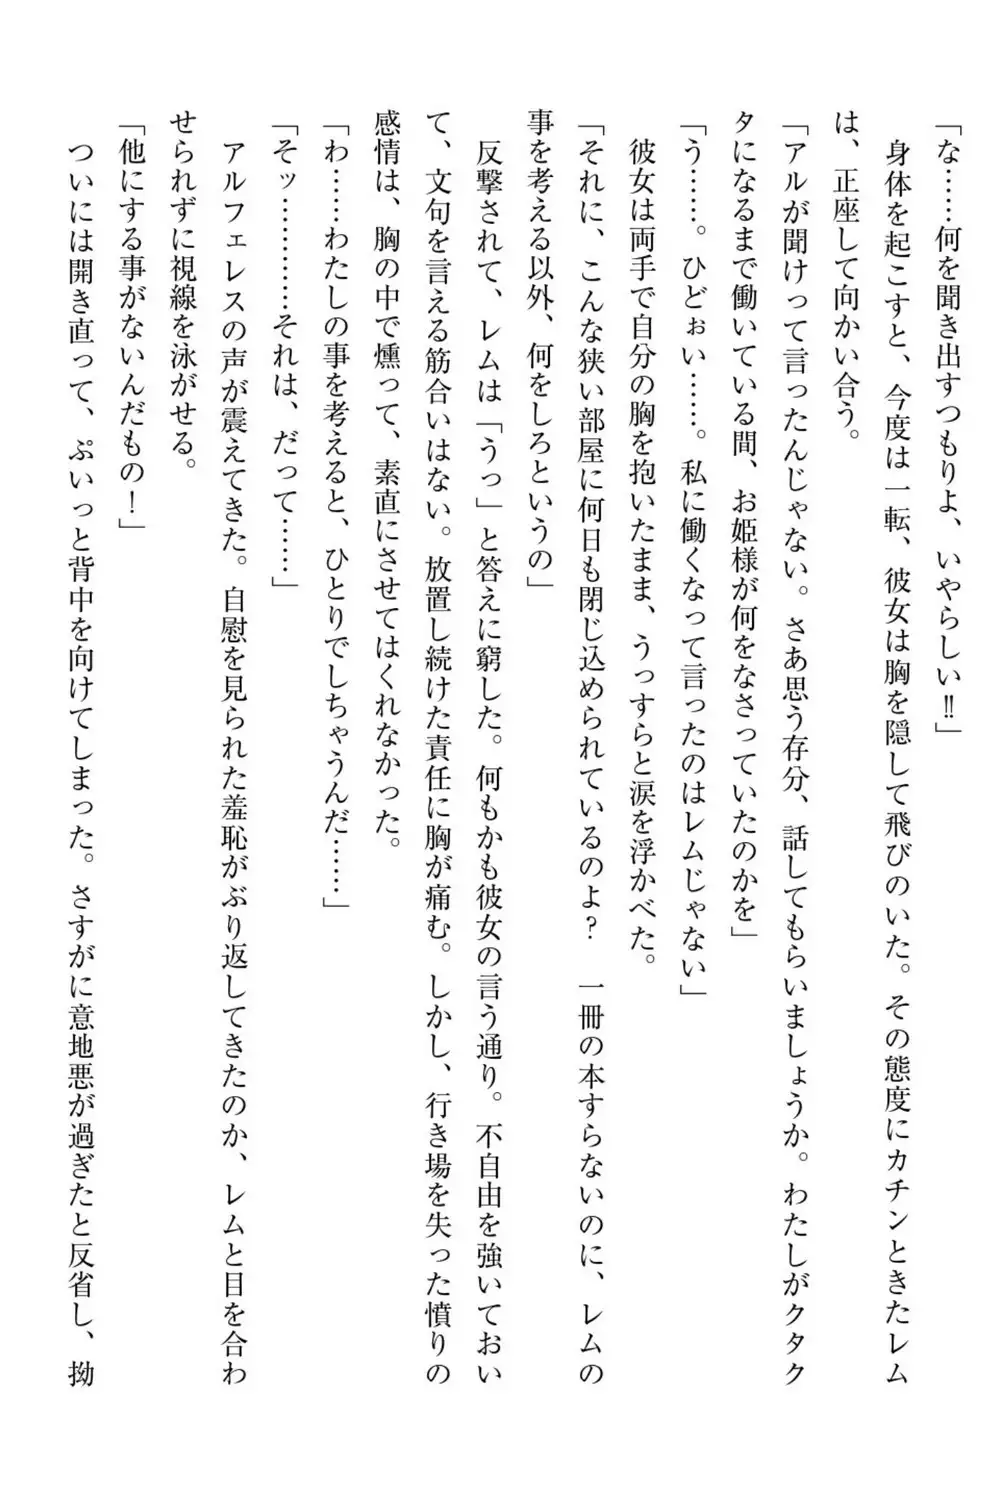 「な……何を聞き出すつもりよ、いやらしい‼」
　身体を起こすと、今度は一転、彼女は胸を隠して飛びのいた。その態度にカチンときたレム
は、正座して向かい合う。
「アルが聞けって言ったんじゃない。さあ思う存分、話してもらいましょうか。わたしがクタク
タになるまで働いている間、お姫様が何をなさっていたのかを」
「う……。ひどぉい……。私に働くなって言ったのはレムじゃない」
　彼女は両手で自分の胸を抱いたまま、うっすらと涙を浮かべた。
「それに、こんな狭い部屋に何日も閉じ込められているのよ？　一冊の本すらないのに、レムの
事を考える以外、何をしろというの」
　反撃されて、レムは「うっ」と答えに窮した。何もかも彼女の言う通り。不自由を強いておい
て、文句を言える筋合いはない。放置し続けた責任に胸が痛む。しかし、行き場を失った憤りの
感情は、胸の中で燻って、素直にさせてはくれなかった。
「わ……わたしの事を考えると、ひとりでしちゃうんだ……」
「そッ…………それは、だって……」
　アルフェレスの声が震えてきた。自慰を見られた羞恥がぶり返してきたのか、レムと目を合わ
せられずに視線を泳がせる。
「他にする事がないんだもの！」
　ついには開き直って、ぷいっと背中を向けてしまった。さすがに意地悪が過ぎたと反省し、拗